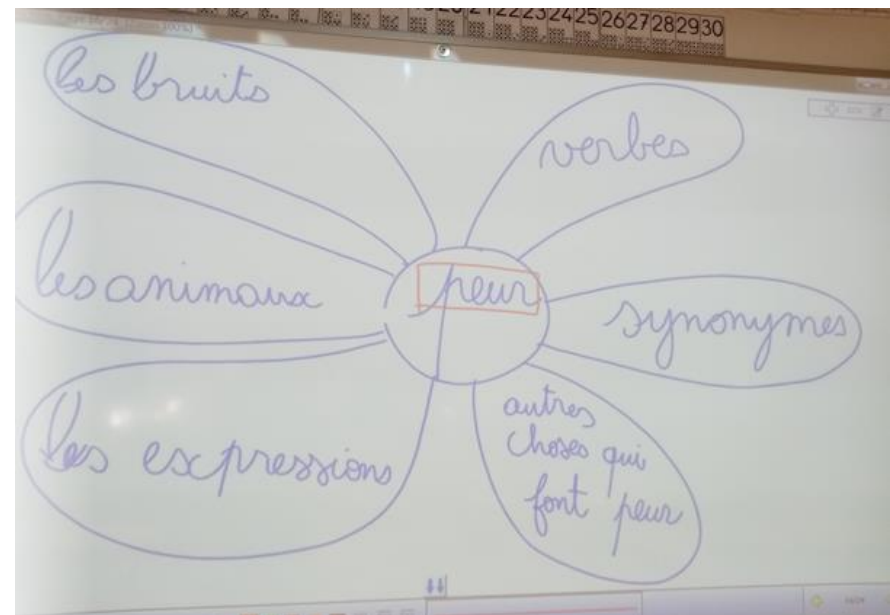 22 23 24 25 26 27 28 29 30
les bruits
verbes
les animaux
peur
synonymes
les expressions
autres
choses qui
font peur